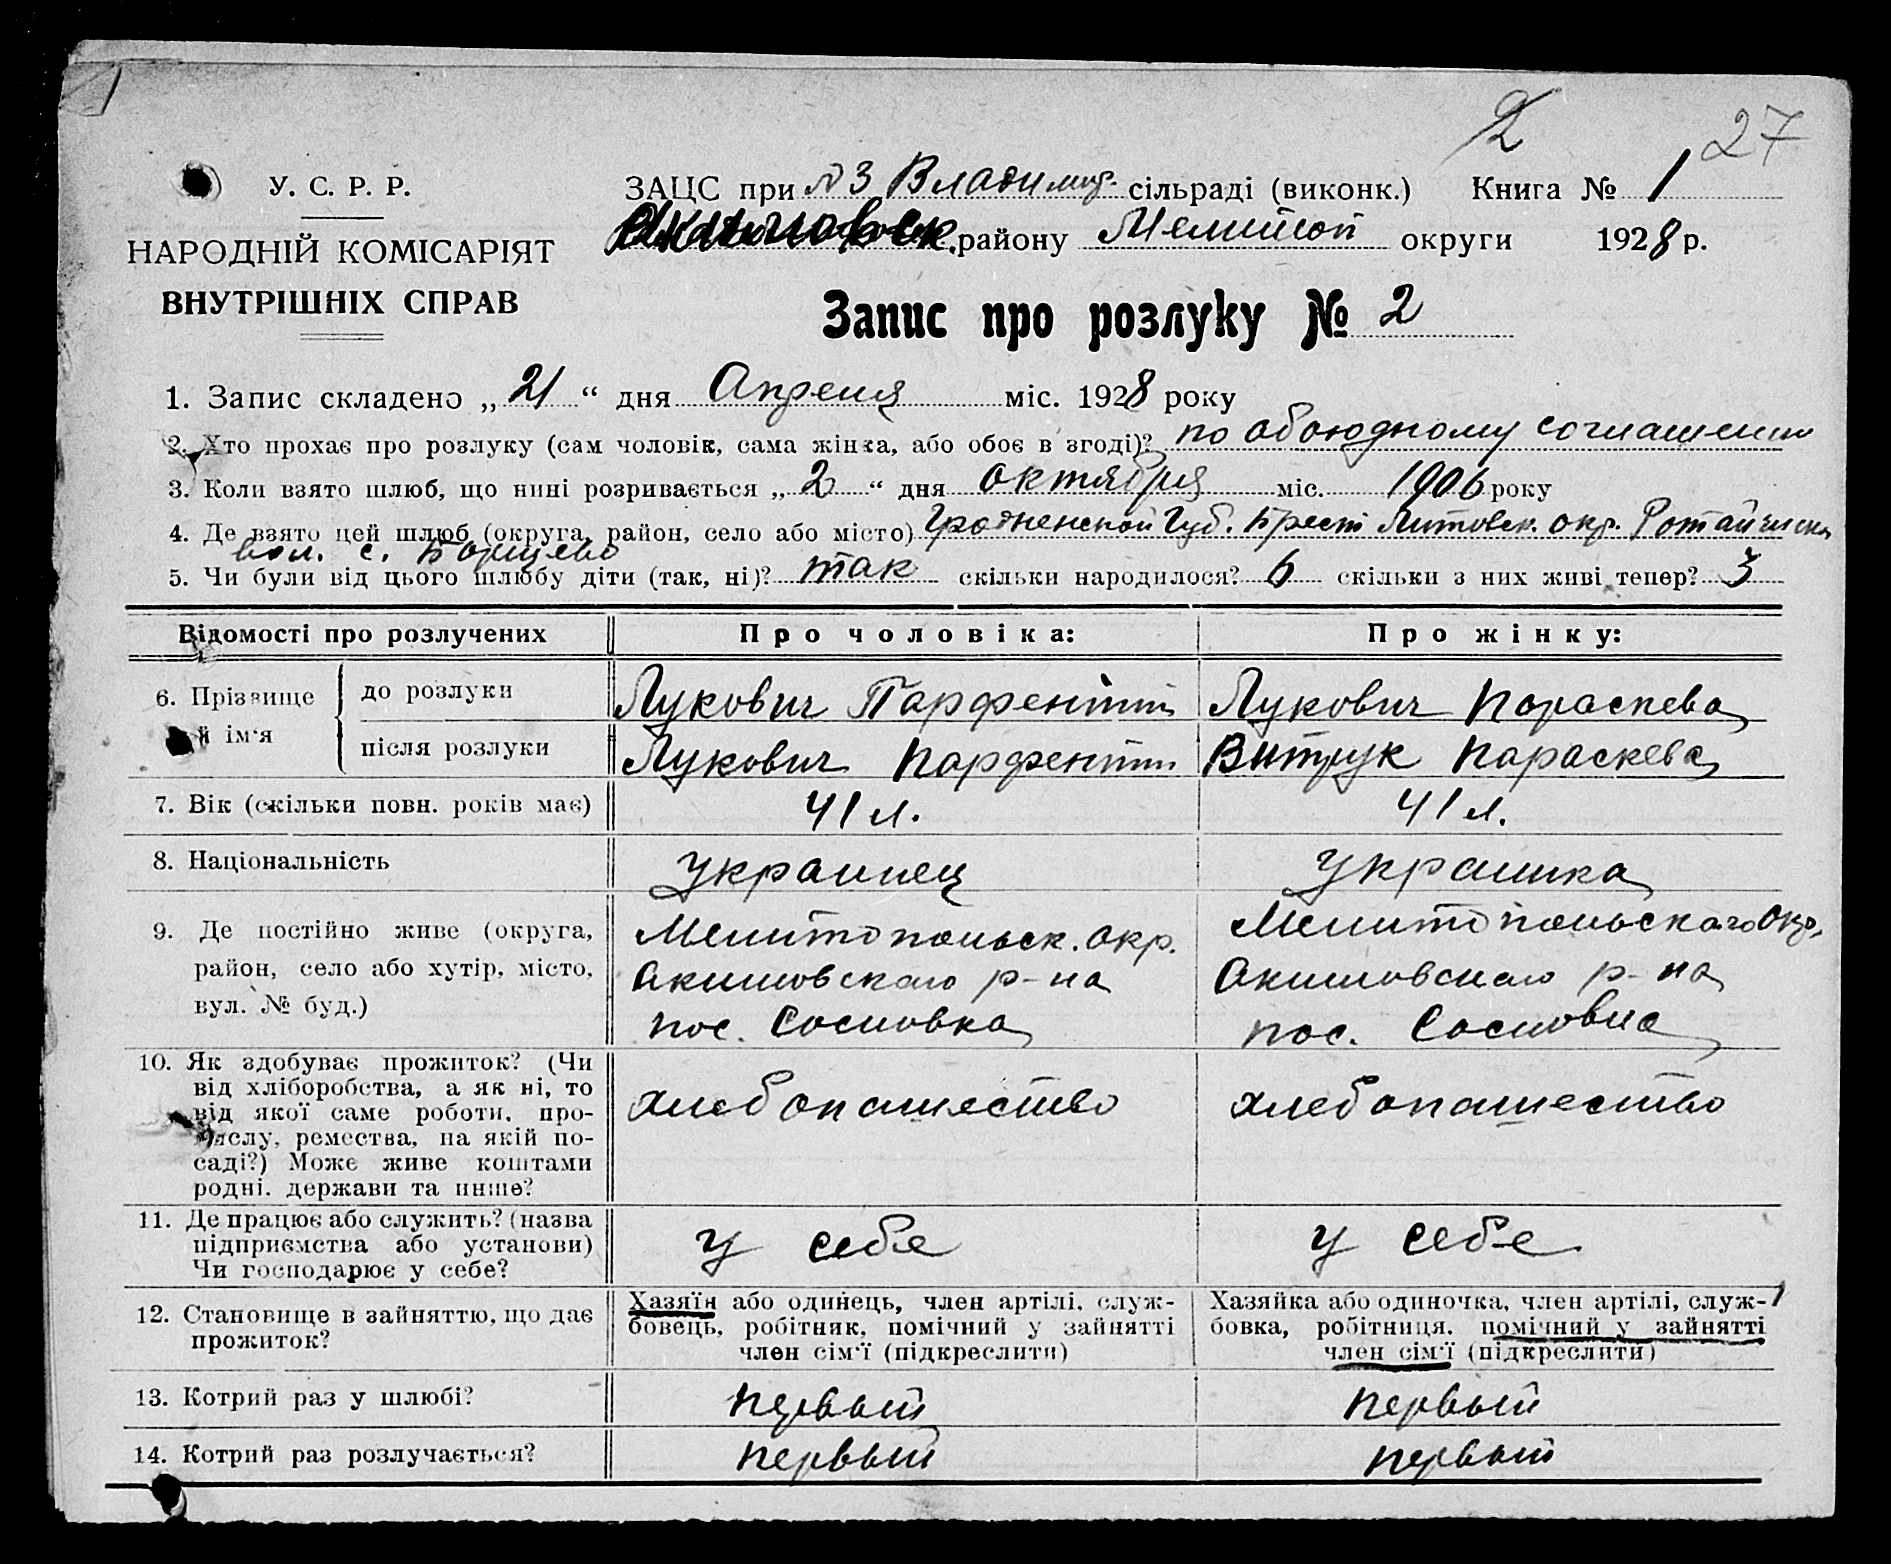 2 27
У. С. Р. Р.
НАРОДНІЙ КОМІСАРІЯТ
ВНУТРІШНІХ СПРАВ
ЗАЦС при №3 Владимир. сільраді (виконк.) Книга № 1
Акимовск. району Мелитоп округи 1928 р.
Запис про розлуку № 2
1. Запис складено „21“ дня Апреля міс. 1928 року
2. Хто прохає про розлуку (сам чоловік, сама жінка, або обоє в згоді)? по обоюдному соглашению
3. Коли взято шлюб, що нині розривається „2“ дня октября міс. 1906 року
4. Де взято цей шлюб (округа, район, село або місто) Гродненской Губ. Брест Литовск. окр. Ротайчиск.
вол. с. Борщево
5. Чи були від цього шлюбу діти (так, ні)? так скільки народилося? 6 скільки з них живі тепер? 3
Відомості про розлучених
Про чоловіка:
Про жінку:
6. Прізвище й ім'я
до розлуки
Лукович Парфентий
Лукович Параскева
після розлуки
Лукович Парфентий
Витрук Параскева
7. Вік (скільки повн. років має)
41 л.
41 л.
8. Національність
украинец
украинка
9. Де постійно живе (округа,
район, село або хутір, місто,
вул. № буд.)
Мелитопольск. окр.
Акимовскаго р-на
пос. Сосновка
Мелитопольскаго окр.
Акимовскаго р-на
пос. Сосновка
10. Як здобуває прожиток? (Чи
від хліборобства, а як ні, то
від якої саме роботи, про-
мислу, ремества, на якій по-
саді?) Може живе коштами
родні. держави та инше?
хлебопашество
хлебопашество
11. Де працює або служить? (назва
підприємства або установи)
Чи господарює у себе?
у себе
у себе
12. Становище в зайняттю, що дає
прожиток?
Хазяїн або одинець, член артілі, служ-
бовець, робітник, помічний у зайнятті
член сім'ї (підкреслити)
Хазяйка або одиночка, член артілі, служ-
бовка, робітниця. помічний у зайнятті
член сім'ї (підкреслити)
13. Котрий раз у шлюбі?
первый
первый
14. Котрий раз розлучається?
первый
первый